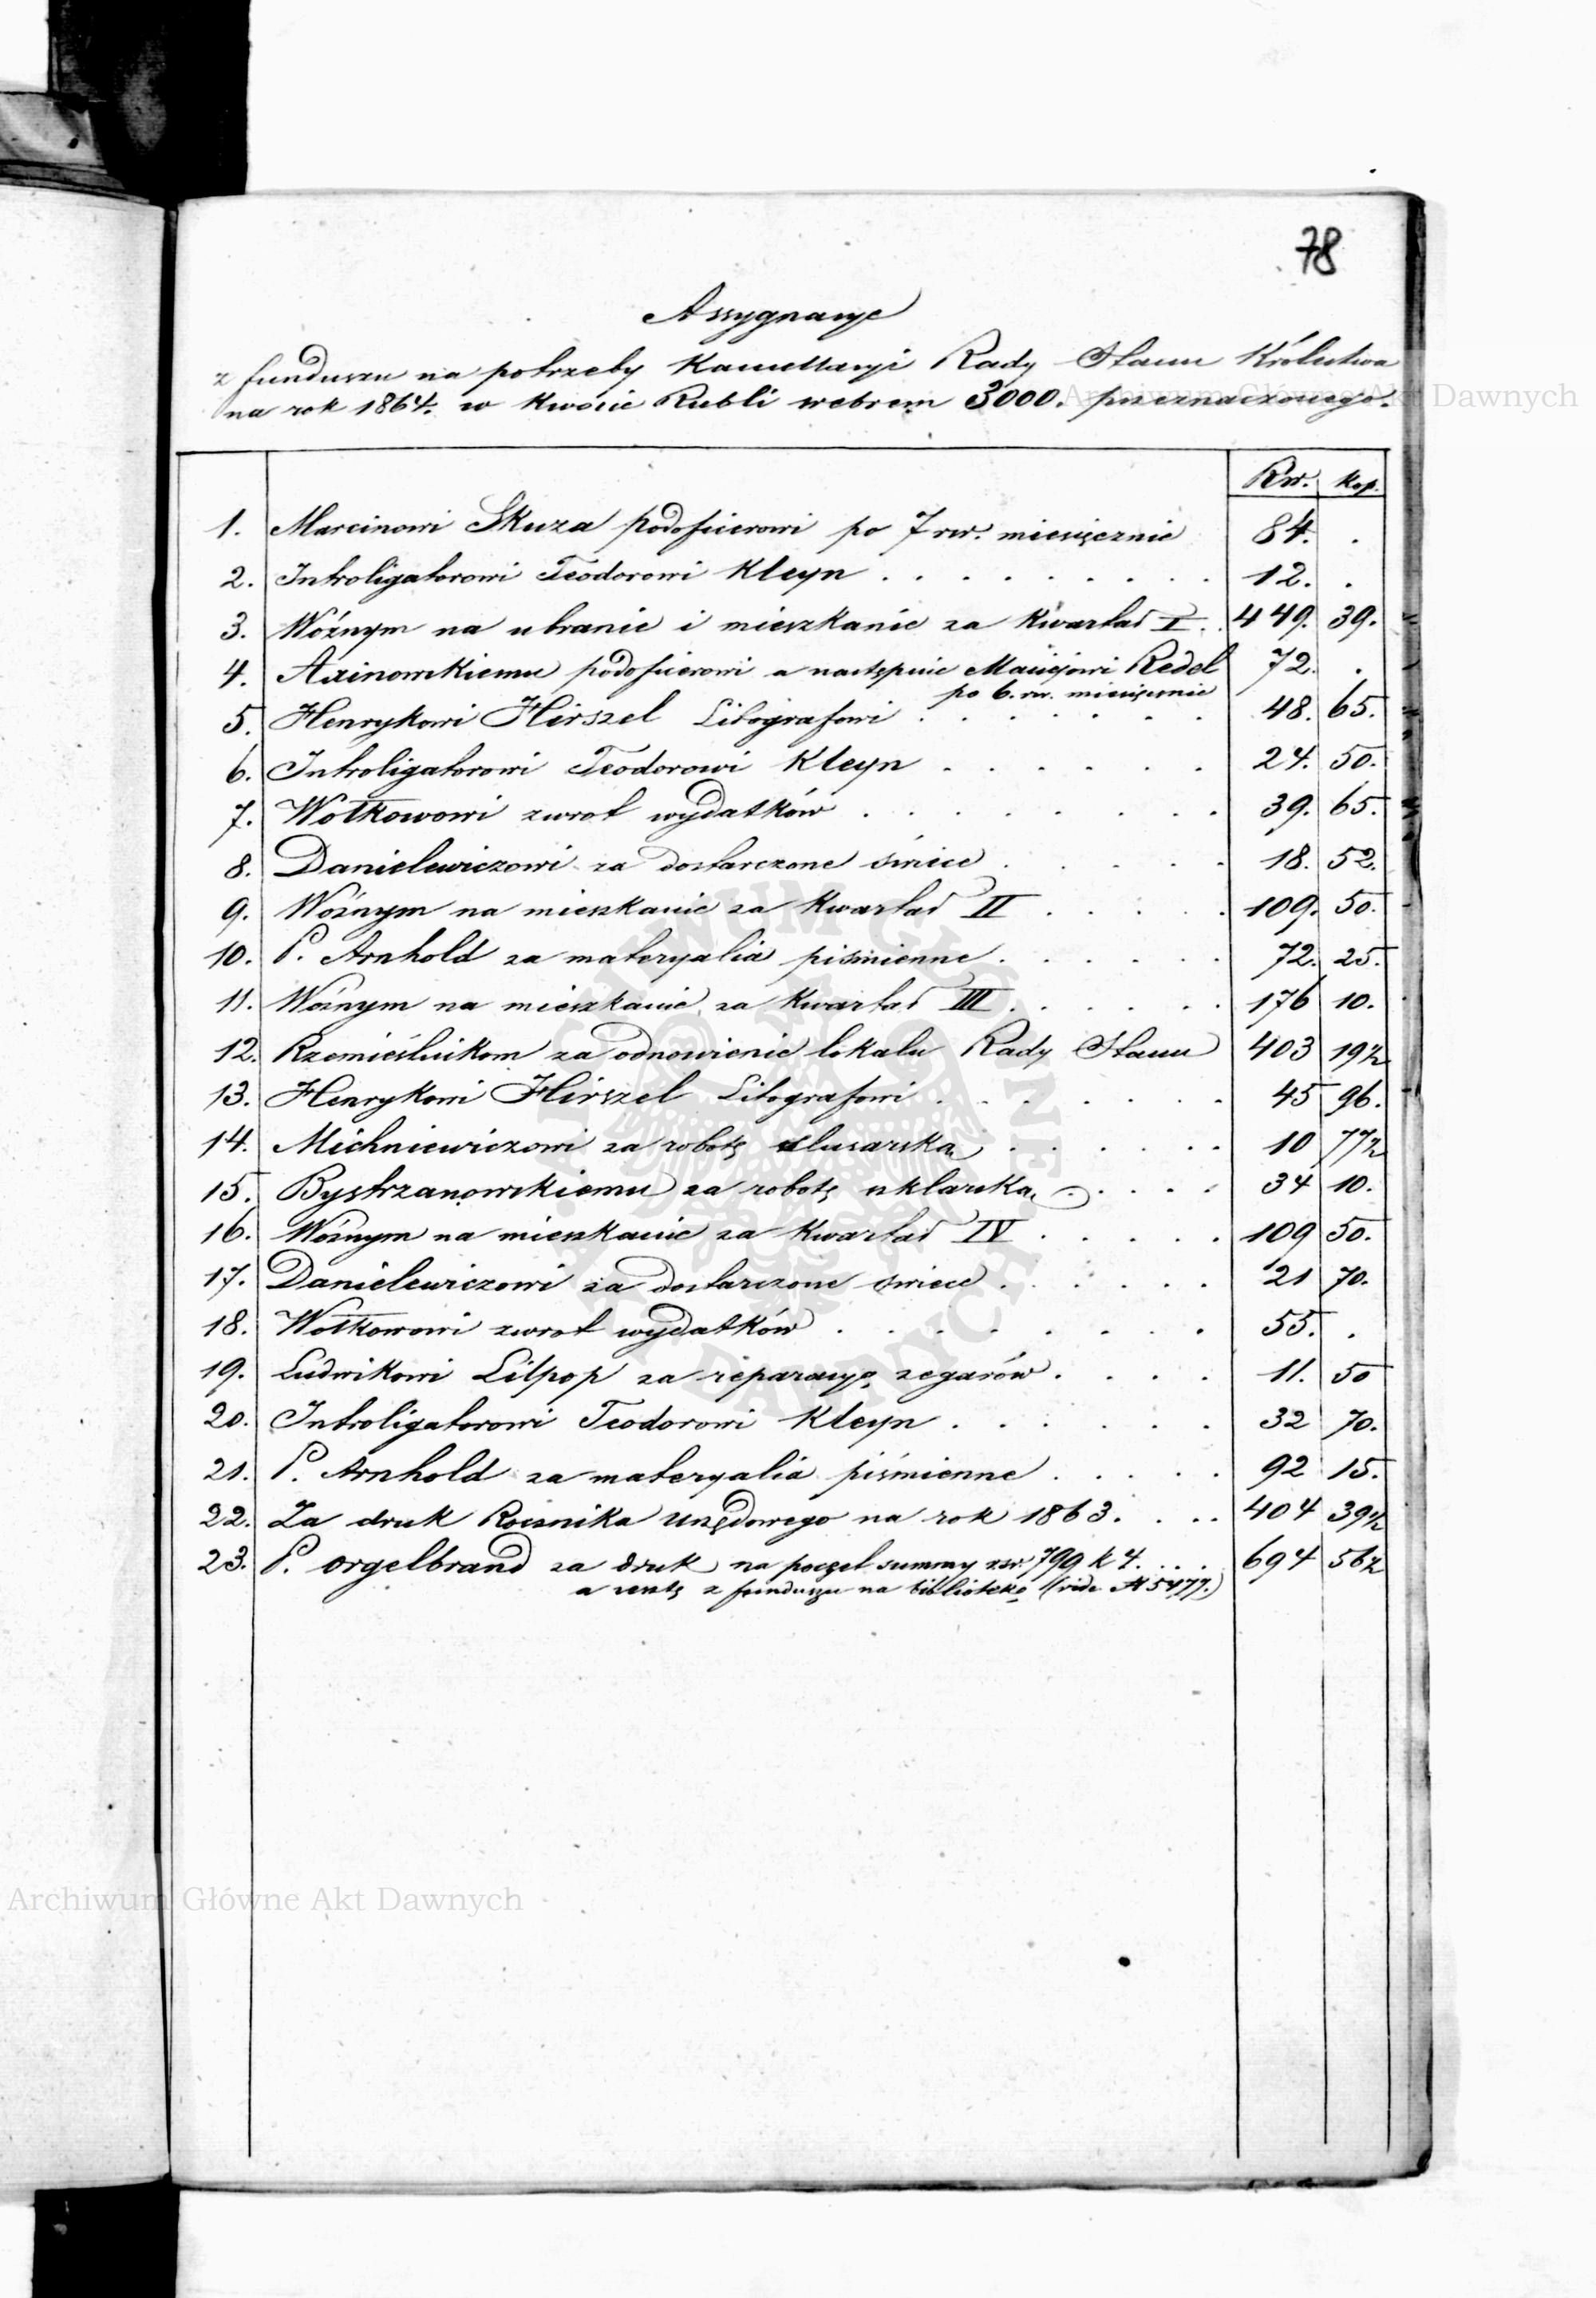 78
Assygnacye
z funduszu na potrzeby Kancellaryi Rady Stanu Królestwa
na rok 1864. w kwocie Rubli srebrem 3000. przeznaczonego.
Rsr. kop.
1. Marcinowi Skuza podoficerowi po 7 rsr. miesięcznie 84. .
2. Introligatorowi Teodorowi Kleyn . . . . . . . . . 12. .
3. Woźnym na ubranie i mieszkanie za Kwartał I. . 449. 39.
4. podoficerowi a następnie Maciejowi Redel 72. .
po 6. rsr. miesięcznie
5. Henrykowi Hirszel Litografowi . . . . . . . 48. 65.
6. Introligatorowi Teodorowi Kleyn . . . . . . 24. 50.
7. Wołkowowi zwrot wydatków . . . . . . . . 39. 65.
8. Danielewiczowi za dostarczone świece . . . . . 18. 52.
9. Woźnym na mieszkanie za Kwartał II . . . . . 109. 50.
10. P. Arnhold za materyalia piśmienne . . . . . . 72. 25.
11. Woźnym na mieszkanie za Kwartał III . . . . . . 176 10.
12. Rzemieślnikom za odnowienie lokalu Rady Stanu 403 19½
13. Henrykowi Hirszel Litografowi . . . . . . . 45 96.
14. Michniewiczowi za robotę slusarską . . . . . . 10 77½
15. Bystrzanowskiemu za robotę szklarską . . . . . 34 10.
16. Woźnym na mieszkanie za Kwartał IV . . . . . 109 50.
17. Danielewiczowi za dostarczone świece . . . . . . 21 70.
18. Wołkowowi zwrot wydatków . . . . . . . . . 55. .
19. Ludwikowi Lilpop za reparacyę zegarów . . . . 11. 50
20. Introligatorowi Teodorowi Kleyn . . . . . . 32 70.
21. P. Arnhold za materyalia piśmienne . . . . . 92 15.
22. Za druk Rocznika Urzędowego na rok 1863. . . . 404 39½
23. P. Orgelbrand za druk na poczet summy rsr. 799 k 4. . . . 694 56½
a resztę z funduszu na bibliotekę (vide N 5477.)
Archiwum Główne Akt Dawnych
Archiwum Główne Akt Dawnych
ARCHIWUM GŁÓWNE AKT DAWNYCH